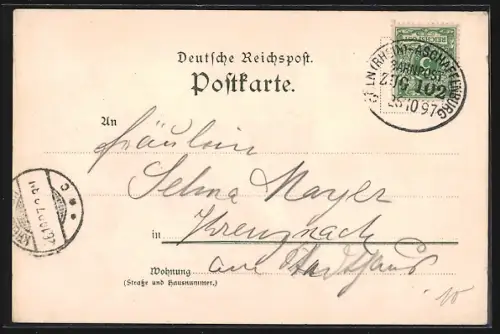 Deutsche Reichspost.
Postkarte.
KÖLN (RHEIN)-ASCHAFFENBURG
BAHNPOST
ZUG 102
25 10 97
An
Fräulein
Selma Mayer
in Kreuznach
am Stadthaus
Wohnung
(Straße und Hausnummer.)